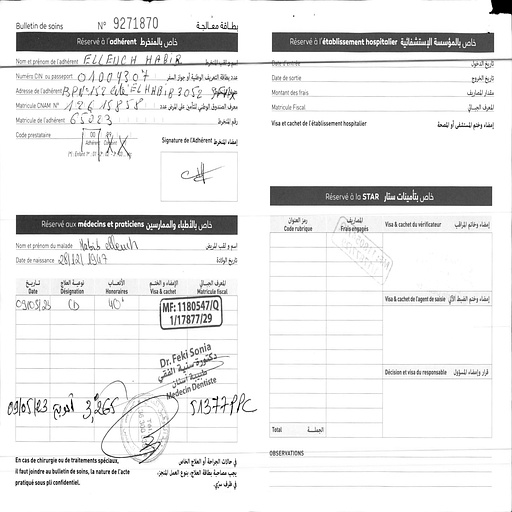 Bulletin de soins N° 9271870 بطاقة معالجة
Réservé à l'adhérent خاص بالمنخرط
Nom et prénom de l'adhérent ELLEUCH HABIB اسم و لقب المنخرط
Numéro CIN ou passeport 01004307 عدد بطاقة التعريف الوطنية أو جواز السفر
Adresse de l'adhérent
Matricule CNAM N° 12615858
Matricule de l'adhérent 65023 رقم المنخرط
Code prestataire
Adhérent
Signature de l'Adhérent إمضاء المنخرط
Réservé aux médecins et praticiens خاص بالأطباء والممارسين
Nom et prénom du malade Habib elleuch اسم و لقب المريض
Date de naissance 28/12/1947 تاريخ الولادة
تاريخ Date
توصية العلاج Désignation
الأتعاب Honoraires
الإمضاء و الختم Visa & cachet
المعرف الجبائي Matricule fiscal
09/05/23 CD 40
MF:1180547/Q
1/17877/29
Dr. Feki Sonia
دكتورة سنية الفقي
طبيبة أسنان
Medecin Dentiste
09/05/23 3,265
En cas de chirurgie ou de traitements spéciaux,
il faut joindre au bulletin de soins, la nature de l'acte
pratiqué sous pli confidentiel.
في حالات الجراحة أو العلاج الخاص
يجب مصاحبة بطاقة العلاج، بنوع العمل المنجز،
في ظرف سري.
Réservé à l'établissement hospitalier خاص بالمؤسسة الإستشفائية
Date d'entrée تاريخ الدخول
Date de sortie تاريخ الخروج
Montant des frais مقدار المصاريف
Matricule Fiscal المعرف الجبائي
Visa et cachet de l'établissement hospitalier إمضاء وختم المستشفى أو المصحة
Réservé à la STAR خاص بتأمينات ستار
رمز العنوان Code rubrique
المصاريف Frais engagés
Visa & cachet du vérificateur إمضاء وخاتم المراقب
Visa & cachet de l'agent de saisie
Décision et visa du responsable قرار وإمضاء المسؤول
Total الجملة
OBSERVATIONS